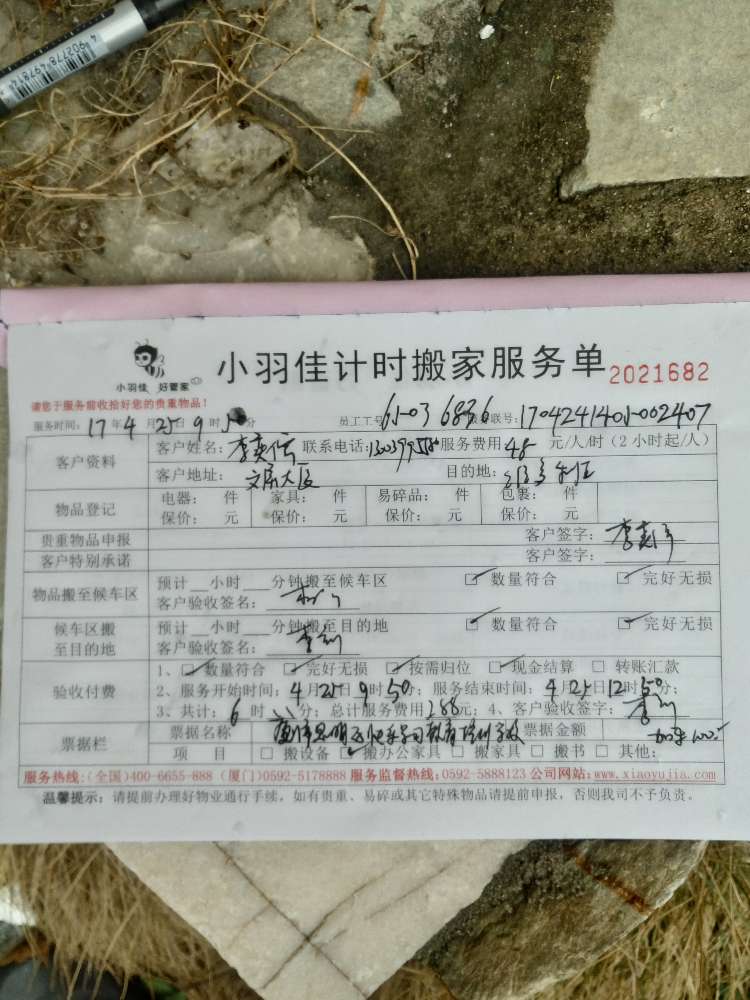 4 902778 497814
小羽佳 好管家
小羽佳计时搬家服务单 2021682
请您于服务前收拾好您的贵重物品！
服务时间：17年4月25日9时50分 员工工号 61-036836 联号：170424140
客户资料 客户姓名： 联系电话： 服务费用48元/人/时（2小时起/人）
客户地址： 目的地：
物品登记 电器： 件 家具： 件 易碎品： 件 包裹： 件
保价： 元 保价： 元 保价： 元 保价： 元
贵重物品申报 客户签字：
客户特别承诺 客户签字：
物品搬至候车区 预计__小时__分钟搬至候车区 ☑数量符合 ☑完好无损
客户验收签名：
候车区搬至目的地 预计__小时__分钟搬至目的地 ☑数量符合 ☑完好无损
客户验收签名：
验收付费 1、☑数量符合 ☑完好无损 ☑按需归位 ☑现金结算 □转账汇款
2、服务开始时间：4月25日9时50；服务结束时间：4月25日12时50；
3、共计：6时 分；总计服务费用288元；4、客户验收签字：
票据栏 票据名称 票据金额
项 目 □搬设备 □搬办公家具 □搬家具 □搬书 □其他：
服务热线：（全国）400-6655-888（厦门）0592-5178888 服务监督热线：0592-5888123 公司网站：www.xiaoyujia.com
温馨提示：请提前办理好物业通行手续，如有贵重、易碎或其它特殊物品请提前申报，否则我司不予负责。